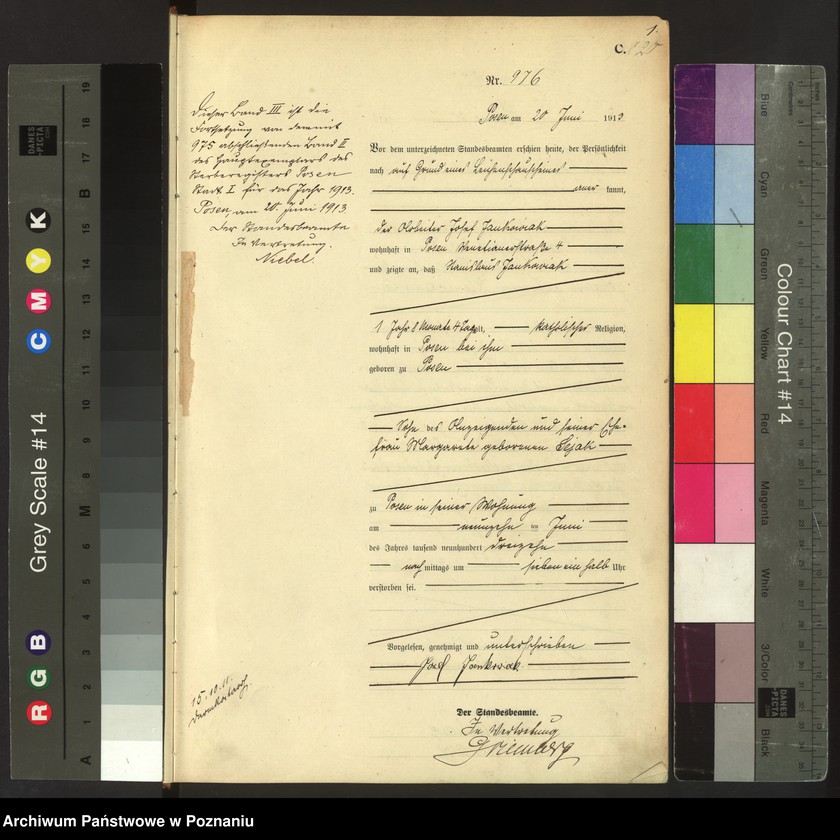 1.
C.
Nr. 976
Posen am 20 Juni 1913
Dieser Band III ist die
Fortsetzung von dem mit
975 abschließenden Band II
des Hauptexemplars des
Sterberegisters Posen
Stadt I für das Jahr 1913.
Posen, am 20. Juni 1913.
Der Standesbeamte
In Vertretung.
Niebel.
Vor dem unterzeichneten Standesbeamten erschien heute, der Persönlichkeit
nach auf Grund eines Leichenschauscheines
kannt,
der Arbeiter Josef Jankowiak
wohnhaft in Posen Venetianerstraße 4
und zeigte an, daß Stanislaus Jankowiak
1 Jahr 8 Monate 4 Tage alt, katholischer Religion,
wohnhaft in Posen bei ihm
geboren zu Posen
Sohn des Anzeigenden und seiner Ehe-
frau Margarete geborenen
zu Posen in seiner Wohnung
am neunzehn ten Juni
des Jahres tausend neunhundert dreizehn
nach mittags um sieben ein halb Uhr
verstorben sei.
Vorgelesen, genehmigt und unterschrieben
Jankowiak
Der Standesbeamte.
In Vertretung
15.10.11.
Grey Scale #14
R G B C M Y K
A 1 2 3 4 5 6 M 8 9 10 11 12 13 14 15 B 17 18 19
DANES
-PICTA
.COM
Colour Chart #14
Blue
Cyan
Green
Yellow
Red
Magenta
White
3/Color
Black
Centimetres
DANES
-PICTA
.COM
Archiwum Państwowe w Poznaniu